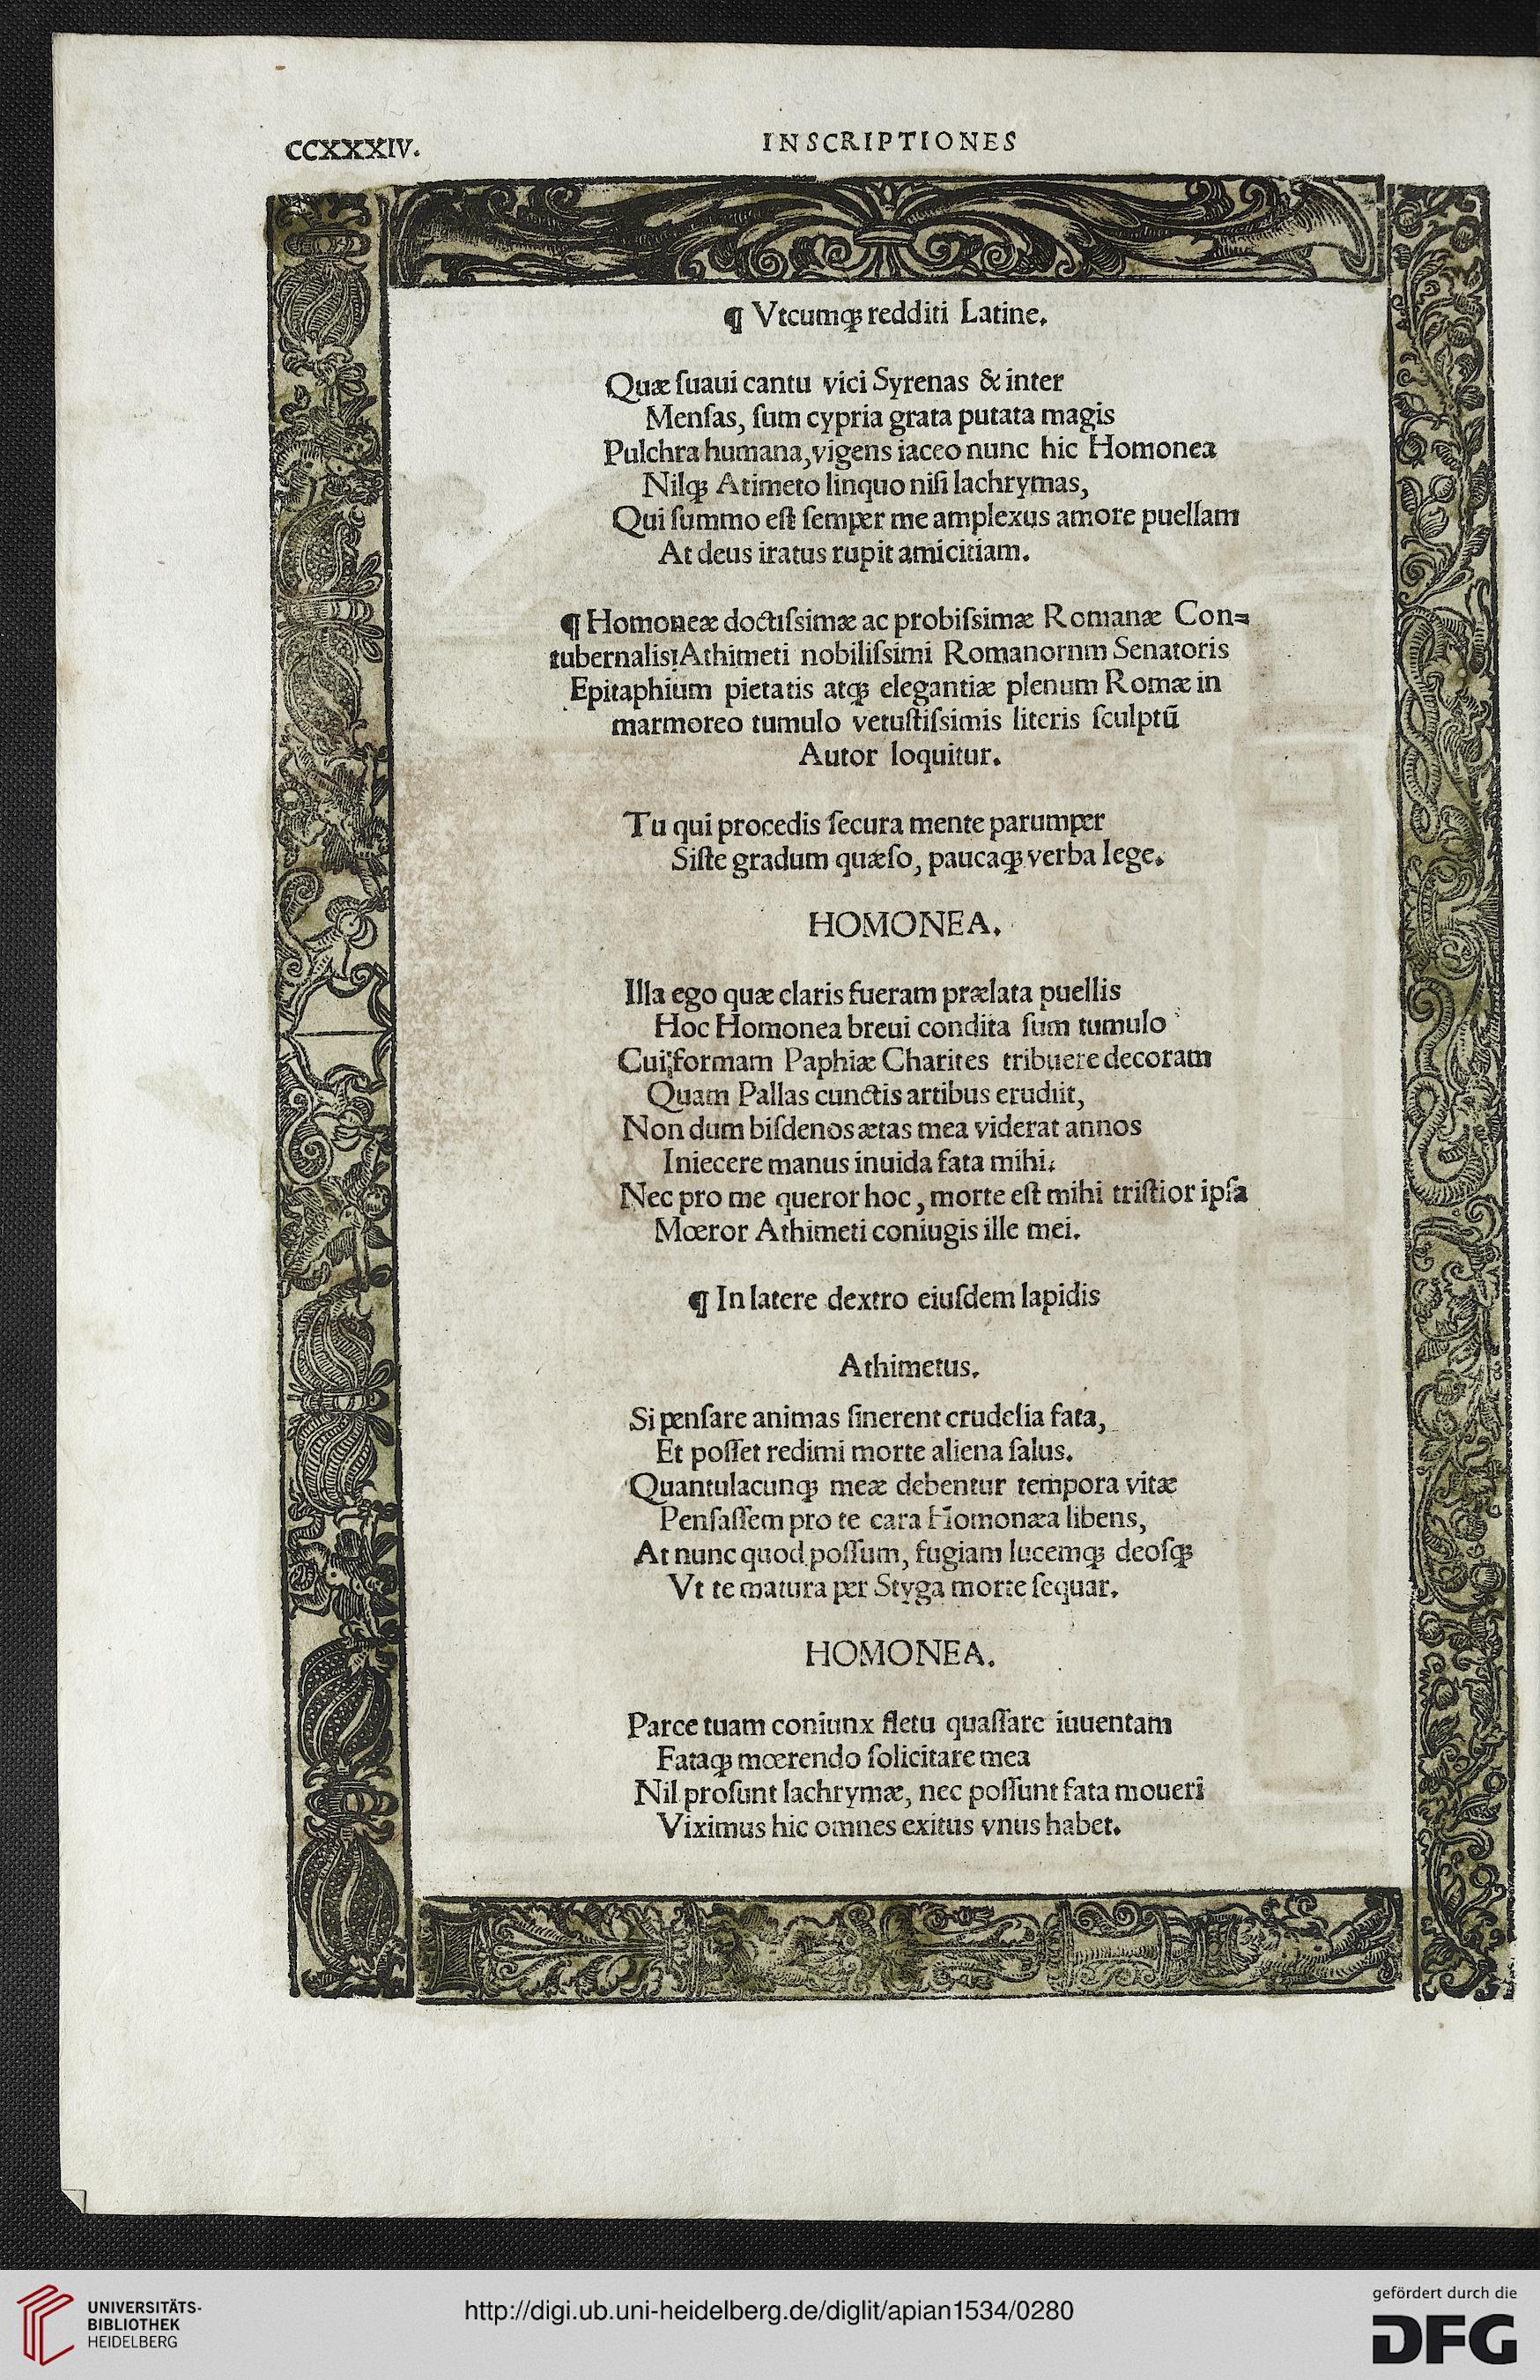 CCXXXIV.
INSCRIPTIONES
¶ Vtcumqꝫ redditi Latine.
Quæ ſuaui cantu vici Syrenas & inter
Menſas, ſum cypria grata putata magis
Pulchra humana, vigens iaceo nunc hic Homonea
Nilqꝫ Atimeto linquo niſi lachrymas,
Qui ſummo eſt ſemper me amplexus amore puellam
At deus iratus rupit amicitiam.
¶ Homoneæ doctiſsimæ ac probiſsimæ Romanæ Con⸗
tubernalisꝗ Athimeti nobiliſsimi Romanornm Senatoris
Epitaphium pietatis atqꝫ elegantiæ plenum Romæ in
marmoreo tumulo vetuſtiſsimis literis ſculptũ
Autor loquitur.
Tu qui procedis ſecura mente parumper
Siſte gradum quæſo, paucaqꝫ verba lege.
HOMONEA.
Illa ego quæ claris fueram prælata puellis
Hoc Homonea breui condita ſum tumulo
Cui formam Paphiæ Charites tribuere decoram
Quam Pallas cunctis artibus erudiit,
Non dum biſdenos ætas mea viderat annos
Iniecere manus inuida fata mihi.
Nec pro me queror hoc, morte eſt mihi triſtior ipſa
Mœror Athimeti coniugis ille mei.
¶ In latere dextro eiuſdem lapidis
Athimetus.
Si penſare animas ſinerent crudelia fata,
Et poſſet redimi morte aliena ſalus.
Quantulacunqꝫ meæ debentur tempora vitæ
Penſaſſem pro te cara Homonæa libens,
At nunc quod poſſum, fugiam lucemqꝫ deoſqꝫ
Vt te matura per Styga morte ſequar.
HOMONEA.
Parce tuam coniunx fletu quaſſare iuuentam
Fataqꝫ mœrendo ſolicitare mea
Nil proſunt lachrymæ, nec poſſunt fata moueri
Viximus hic omnes exitus vnus habet.
UNIVERSITÄTS-
BIBLIOTHEK
HEIDELBERG
http://digi.ub.uni-heidelberg.de/diglit/apian1534/0280
gefördert durch die
DFG